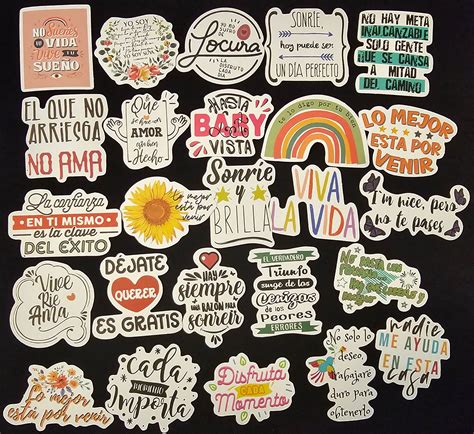 NO Sueñes
TU VIDA
Vive tu
SUEÑO
YO SOY
Locura
ES NO
DISFRUTARLA
CADA DÍA
SONRÍE,
hoy puede ser
UN DÍA PERFECTO
NO HAY META
INALCANZABLE
SOLO GENTE
QUE SE CANSA
A MITAD
DEL CAMINO
EL QUE NO
ARRIESGA
NO AMA
Que
AMOR
Hecho
HASTA LA
BABY
VISTA
te lo digo por tu bien
LO MEJOR
ESTA POR
VENIR
La confianza
EN TI MISMO
ES LA CLAVE
DEL ÉXITO
Lo mejor
está por
venir
Sonríe
y
BRILLA
VIVA
LA VIDA
I'm nice, pero
no te pases
Vive
Ríe
Ama
DÉJATE
QUERER
ES GRATIS
HAY
siempre
UNA RAZÓN PARA
sonreír
EL VERDADERO
Triunfo
SURGE DE LAS
Cenizas
de los
Peores
ERRORES
mejor
Lo mejor
está por venir
Cada
MOMENTO
Importa
Disfruta
CADA
Momento
No solo lo
deseo,
trabajaré
duro para
obtenerlo
Nadie
ME AYUDA
EN ESTA
casa